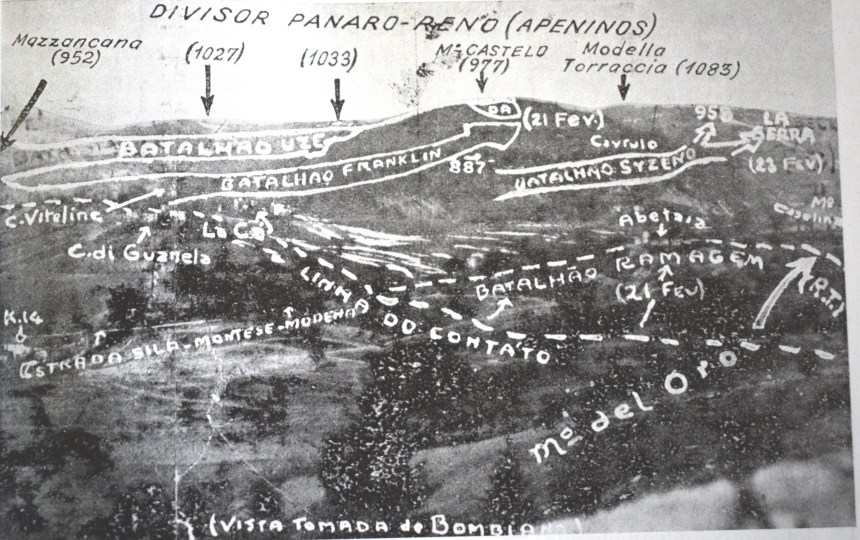 DIVISOR PANARO-RENO (APENINOS)
Mazzancana
(952)
(1027)
(1033)
Mte CASTELO
(977)
Modella
Torraccia (1083)
DA
(21 Fev.)
958
LA
SERRA
(23 Fev)
BATALHÃO UZE
BATALHÃO FRANKLIN
887
Cavrulo
BATALHÃO SYZENO
C. Viteline
La Ca
C. di Guznela
Abetaia
BATALHÃO RAMAGEM
(21 FEV)
(P.T.)
LINHA DO CONTATO
K.14
ESTRADA SILA-MONTESE-MODENA
Mº del Oro
(VISTA TOMADA de BOMBIANA)